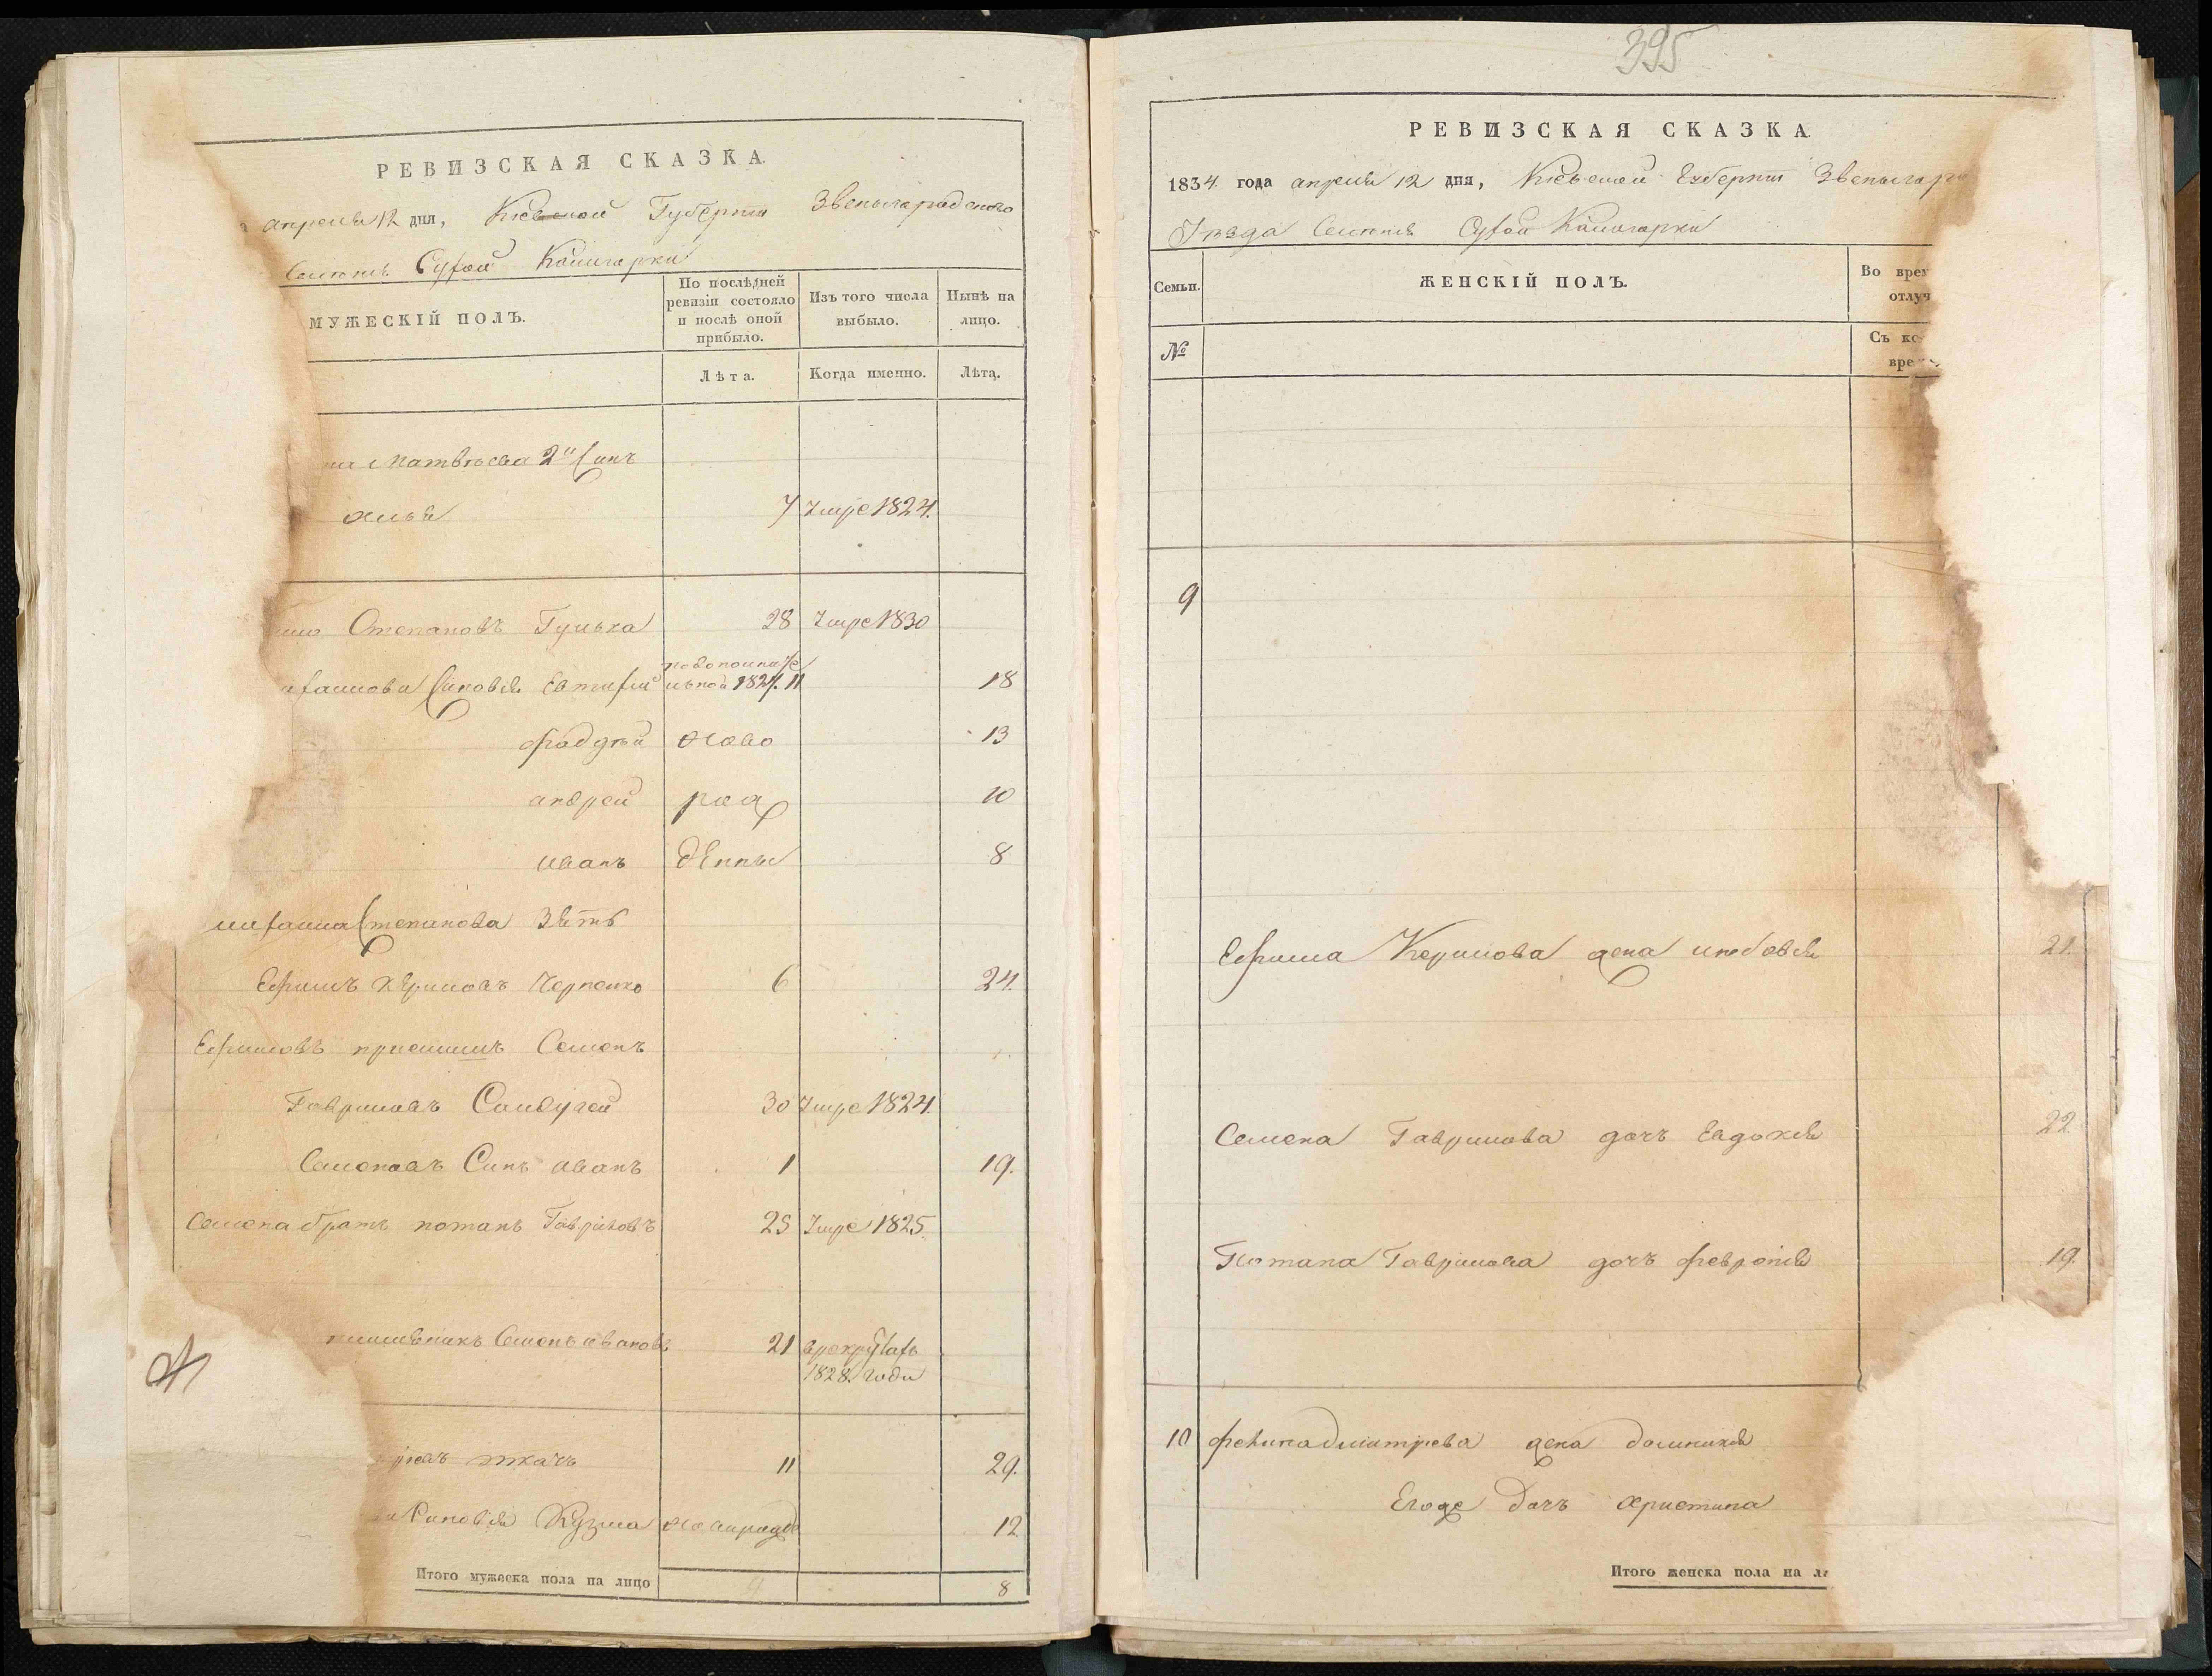 РЕВИЗСКАЯ СКАЗКА.
апреля 12 дня, Киевской Губернiи Звенигородского
Селенiя Сухой Калигорки
МУЖЕСКІЙ ПОЛЪ.
По послѣдней ревизіи состояло и послѣ оной прибыло.
Изъ того числа выбыло.
Нынѣ на лицо.
Лѣта.
Когда именно.
Лѣта.
Матвѣева 2й Синъ
7 Умре 1824.
Степановъ Гулька 28 Умре 1830
Синовья Евтифiй 1827. 11 18
Фаддѣй ново 13
андрей рож 10
иванъ денны 8
Степанова Зять
Ефимъ Кириловъ Черненко 6 24.
Ефимовъ приемишъ Семенъ
Гавриловъ 30 Умре 1824.
Семеновъ Синъ иванъ 1 19.
Семена братъ потапъ Гавриловъ 25 Умре 1825.
Семенъ ивановъ 21
1828. годи
ткачъ 11 29.
Синовья Кузма 12
Итого мужеска пола на лицо 8
395
РЕВИЗСКАЯ СКАЗКА
1834 года апреля 12 дня, Киевской Губернiи Звенигоро
Уезда Селенiя Сухой Калигорки
Семьи.
ЖЕНСКІЙ ПОЛЪ.
Во врем
отлуч
№
Съ ко
вре
9
Ефима Кирилова жена 21.
Семена Гаврилова дочь Евдокия 22
Потапа Гаврилова дочь феврония 19.
10 Дмитриева жена домникия
Егоже дочъ христина
Итого женска пола на ли